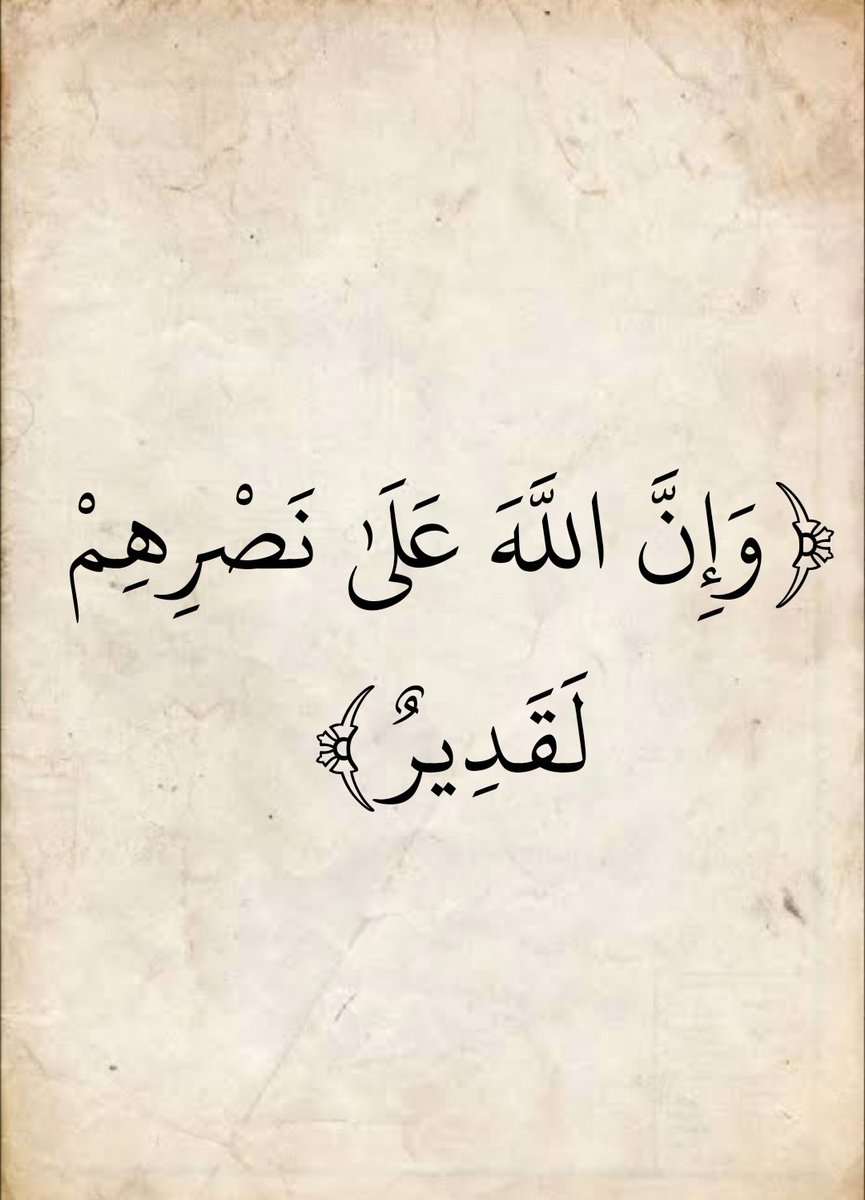 ﴿وَإِنَّ اللَّهَ عَلَىٰ نَصْرِهِمْ
لَقَدِيرٌ﴾